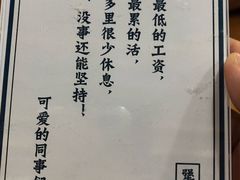 最低的工资，
最累的活，
多里很少休息，
没事还能坚持！
可爱的同事